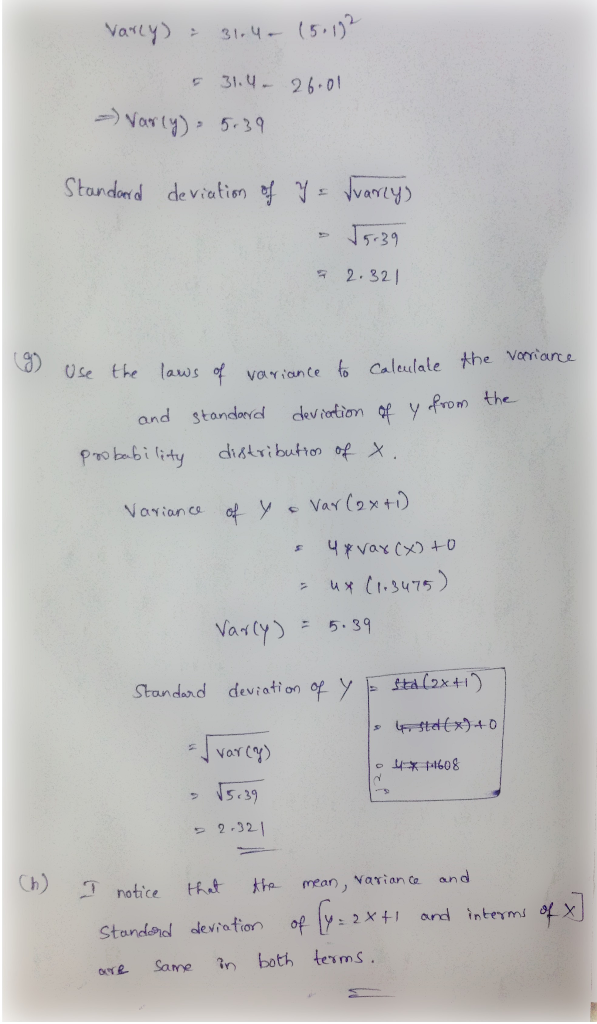 Var(y) = 31.4 - (5.1)²
= 31.4 - 26.01
⇒ Var(y) = 5.39
Standard deviation of Y = √var(y)
= √5.39
= 2.321
(g) Use the laws of variance to calculate the variance
and standard deviation of y from the
probability distribution of X.
Variance of Y = Var(2x+1)
= 4 * var(x) + 0
= 4* (1.3475)
Var(y) = 5.39
Standard deviation of Y = std(2x+1)
= 4. std(x)+0
= 4 * 1.1608
= √var(y)
= √5.39
= 2.321
(h) I notice that the mean, variance and
Standard deviation of [y = 2x+1 and interms of X]
are same in both terms.